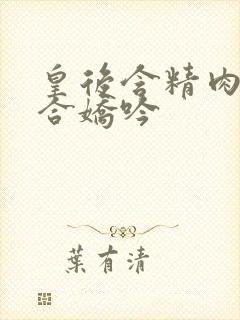 皇後含精肉
合嬌吟
葉有清